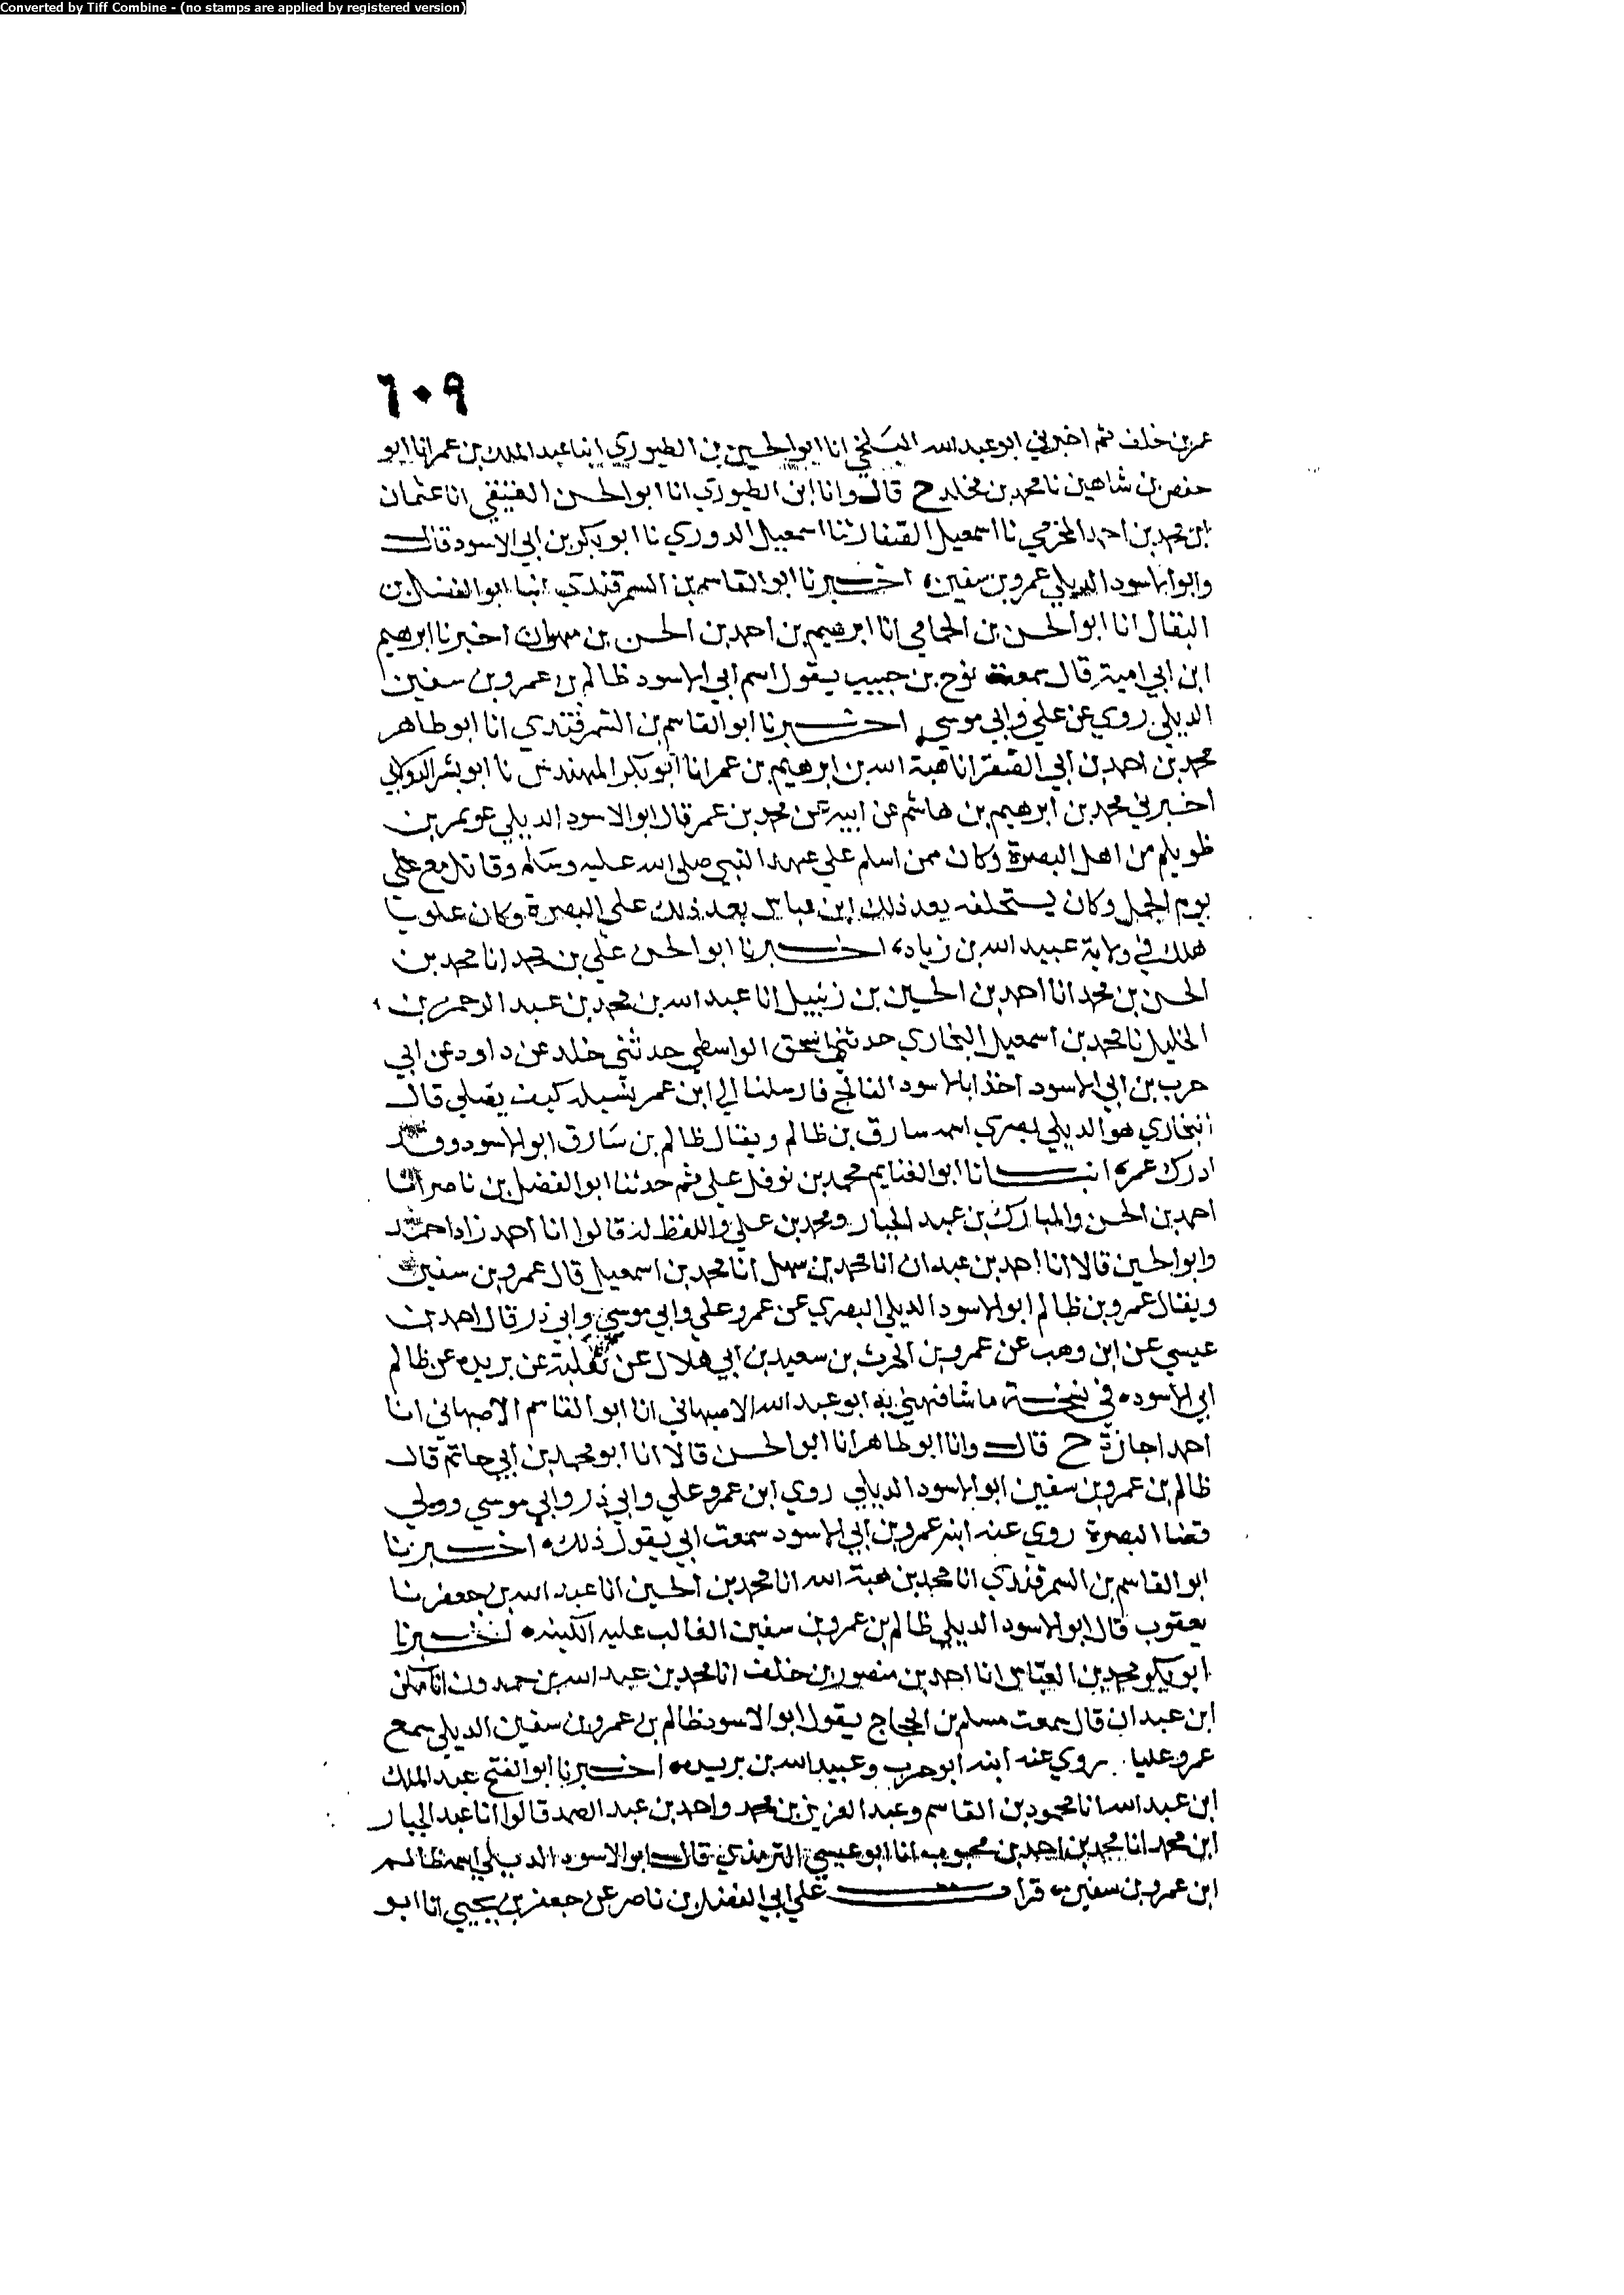 Converted by Tiff Combine - (no stamps are applied by registered version)
٦٠٩
عمر بن خلف ثم اخبرني ابو عبد الله البلخي انا ابو الحسين بن الطيوري انبا عبد الملك بن عمر انا ابو
حفص بن شاهين نا محمد بن مخلد ح قال وانا ابن الطيوري انا ابو الحسن العتيقي انا عثمان
ابن محمد بن احمد المخرمي نا اسمعيل الصفار نا اسمعيل الدوري نا ابو بكر بن ابي الاسود قال
وابو الاسود الديلي عمرو بن سفين اخبرنا ابو القاسم بن السمرقندي انبا ابو الفضل بن
البقال انا ابو الحسن بن الحمامي انا ابرهيم بن احمد بن الحسن بن مهران اخبرنا ابرهيم
ابن ابي امية قال سمعت نوح بن حبيب يقول اسم ابي الاسود ظالم بن عمرو بن سفين
الديلي روي عن علي وابي موسي اخبرنا ابو القاسم بن السمرقندي انا ابو طاهر
محمد بن احمد بن ابي الصقر انا هبة الله بن ابرهيم بن عمر انا ابو بكر المهندس نا ابو بشر الدولابي
اخبرني محمد بن ابرهيم بن هاشم عن ابيه عن محمد بن عمر قال ابو الاسود الديلي عويمر بن
ظويلم من اهل البصرة وكان ممن اسلم علي عهد النبي صلى الله عليه وسلم وقاتل مع علي
يوم الجمل وكان يستخلفه بعد ذلك ابن عباس بعد ذلك على البصرة وكان علويا
هلك في ولاية عبيد الله بن زياد اخبرنا ابو الحسن علي بن محمد انا محمد بن
الحسن بن محمد انا احمد بن الحسين بن زنبيل انا عبد الله بن محمد بن عبد الرحمن بن
الخليل نا محمد بن اسمعيل البخاري حدثني اسحق الواسطي حدثني خلد عن داود عن ابي
حرب بن ابي الاسود اخذ ابا الاسود الفالج فارسلنا الي ابن عمر نسيله كيف يصلي قال
البخاري هو الديلي بصري اسمه سارق بن ظالم ويقال ظالم بن سارق ابو الاسود وقد
ادرك عمر انبانا ابو الغنايم محمد بن نوفل علي ثم حدثنا ابو الفضل بن ناصر انا
احمد بن الحسن والمبارك بن عبد الجبار ومحمد بن علي واللفظ له قالوا انا احمد زاد احمد
وابو الحسين قالا انا احمد بن عبدان انا محمد بن سهل انا محمد بن اسمعيل قال عمرو بن سفين
ويقال عمرو بن ظالم ابو الاسود الديلي البصري عن عمر وعلي وابي موسي وابي ذر قال احمد بن
عيسي عن ابن وهب عن عمرو بن الحرث بن سعيد بن ابي هلال عن ثعلبة عن بريده عن ظالم
ابي الاسود في نسخة ما شافهني به ابو عبد الله الاصبهاني انا ابو القاسم الاصبهاني انا
احمد اجازة ح قال وانا ابو طاهر انا ابو الحسن قالا انا ابو محمد بن ابي حاتم قال
ظالم بن عمرو بن سفين ابو الاسود الديلي روي ابن عمر وعلي وابي ذر وابي موسي وولي
قضا البصرة روي عنه ابنه عمرو بن ابي الاسود سمعت ابي يقول ذلك اخبرنا
ابو القاسم بن السمرقندي انا محمد بن هبة الله انا محمد بن الحسين انا عبد الله بن جعفر نا
يعقوب قال ابو الاسود الديلي ظالم بن عمرو بن سفين الغالب عليه الكنيه اخبرنا
ابو بكر محمد بن العباس انا احمد بن منصور بن خلف انا محمد بن عبد الله بن حمدون انا مكي
ابن عبدان قال سمعت مسلم بن الحجاج يقول ابو الاسود ظالم بن عمرو بن سفين الديلي سمع
عمر وعليا روي عنه ابنه ابو حرب وعبيد الله بن بريده اخبرنا ابو الفتح عبد الملك
ابن عبد الله انا محمود بن القاسم وعبد العزيز بن محمد واحمد بن عبد الصمد قالوا انا عبد الجبار
ابن محمد انا محمد بن احمد بن محبوب انا ابو عيسي الترمذي قال ابو الاسود الديلي اسمه ظالم
ابن عمرو بن سفين قرات علي ابي الفضل بن ناصر عن جعفر بن يحيي انا ابو